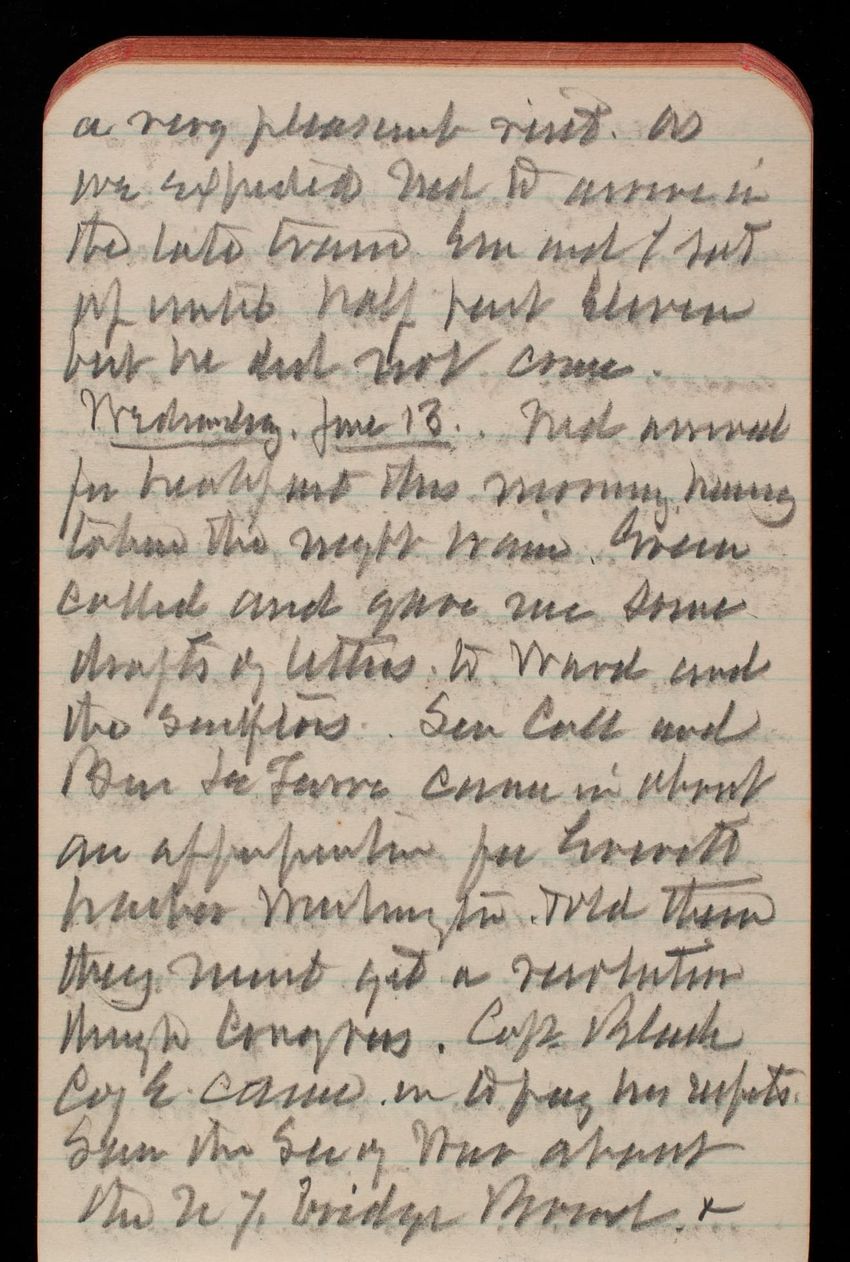 a very pleasant visit. As
we expected Ned to arrive in
the late train Em and I sat
up until half past Eleven
but he did not come.
Wednesday. June 13. . Ned arrived
for breakfast this morning, having
taken the night train. Green
called and gave me some
drafts of letters to Ward and
the sculptors. Sen Call and
came in about
an appropriation for Everett
harbor Washington. Told them
they must get a resolution
through Congress. Capt Black
Co E. came in to pay his respects.
Saw the Sec of War about
the N Y. Bridge Board. +